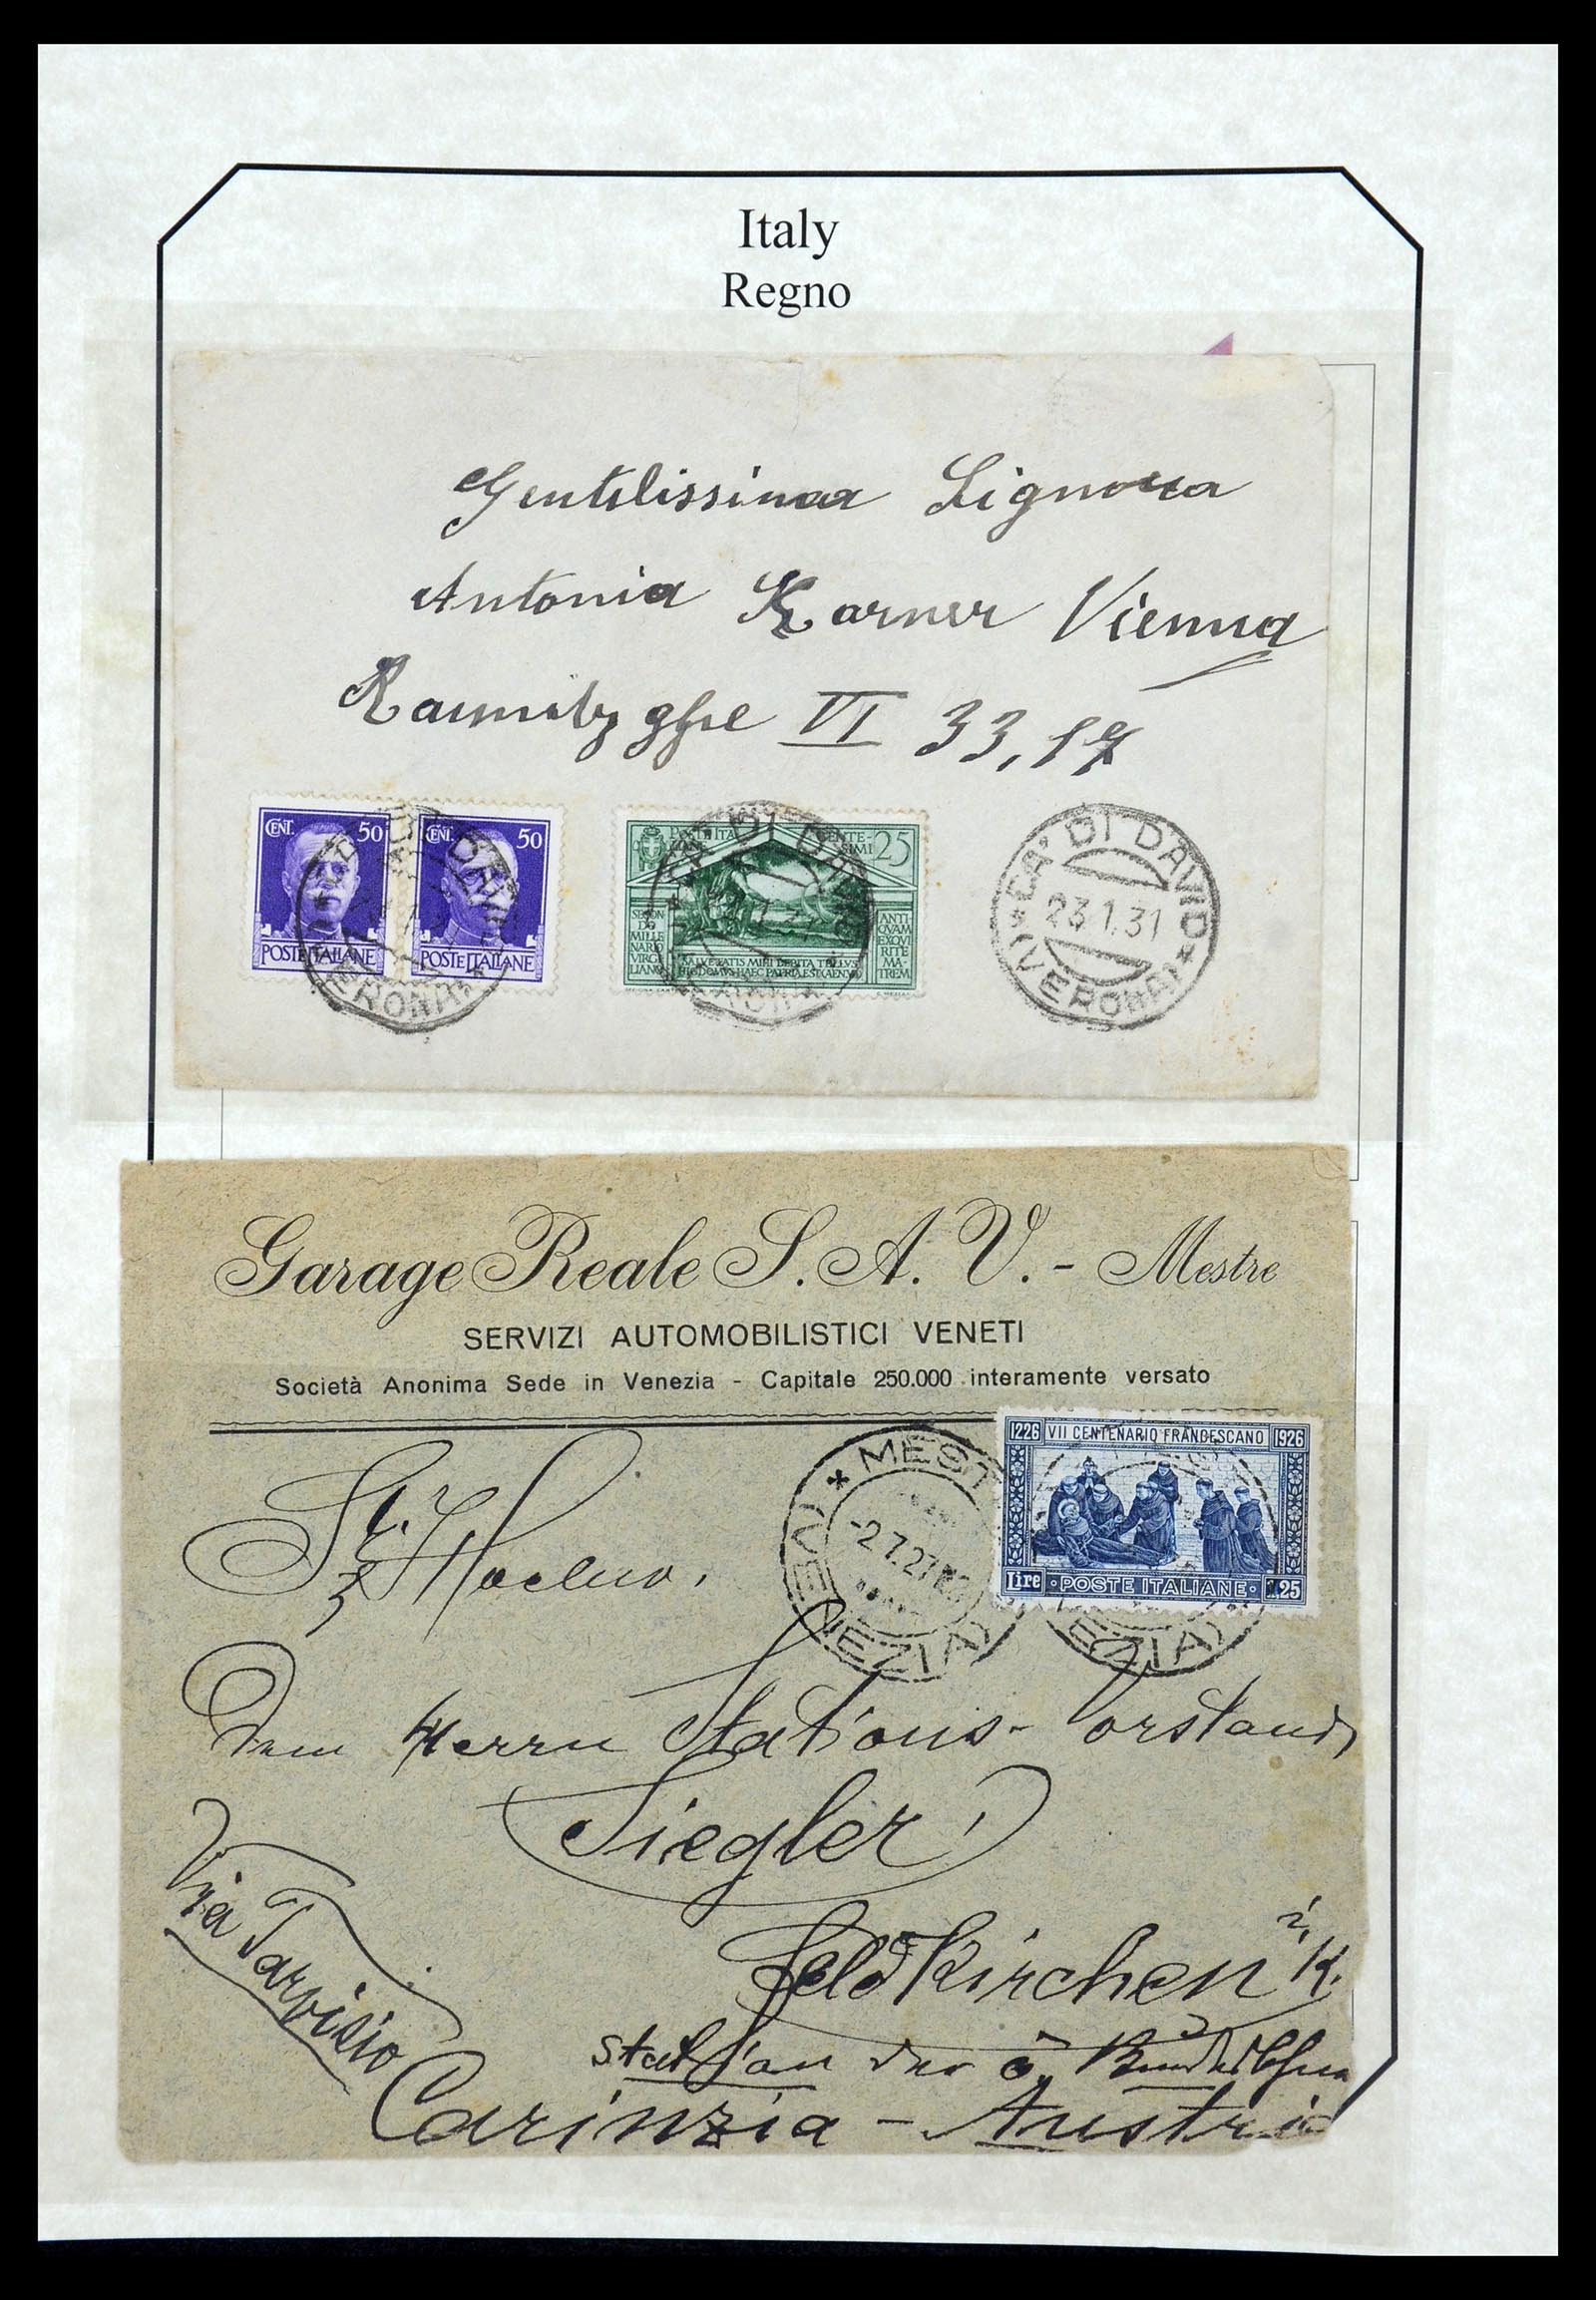 Italy
Regno
Gentilissima Signora
Antonia Karner Vienna
VI 33, 17
CENT. 50
POSTE ITALIANE
CENT. 50
POSTE ITALIANE
CA' DI DAVID
(VERONA)
POSTE ITALIANE CENTESIMI 25
SECONDO MILLENARIO VIRGILIANO
SALVE FATIS MIHI DEBITA TELLVS
HIC DOMVS HAEC PATRIA EST (AEN. VII)
ANTIQVAM EXQVIRITE MATREM
CA' DI DAVID
23.1.31
(VERONA)
Garage Reale S. A. V. - Mestre
SERVIZI AUTOMOBILISTICI VENETI
Società Anonima Sede in Venezia - Capitale 250.000 interamente versato
1226 VII CENTENARIO FRANCESCANO 1926
Lire POSTE ITALIANE 1.25
* MESTRE
-2.7.27
(VENEZIA)
Dem Herrn Stations-Vorstand
Siegler
Feldkirchen i. K.
Station der ö. Bundesbahn
Carinzia - Austria
Via Tarvisio